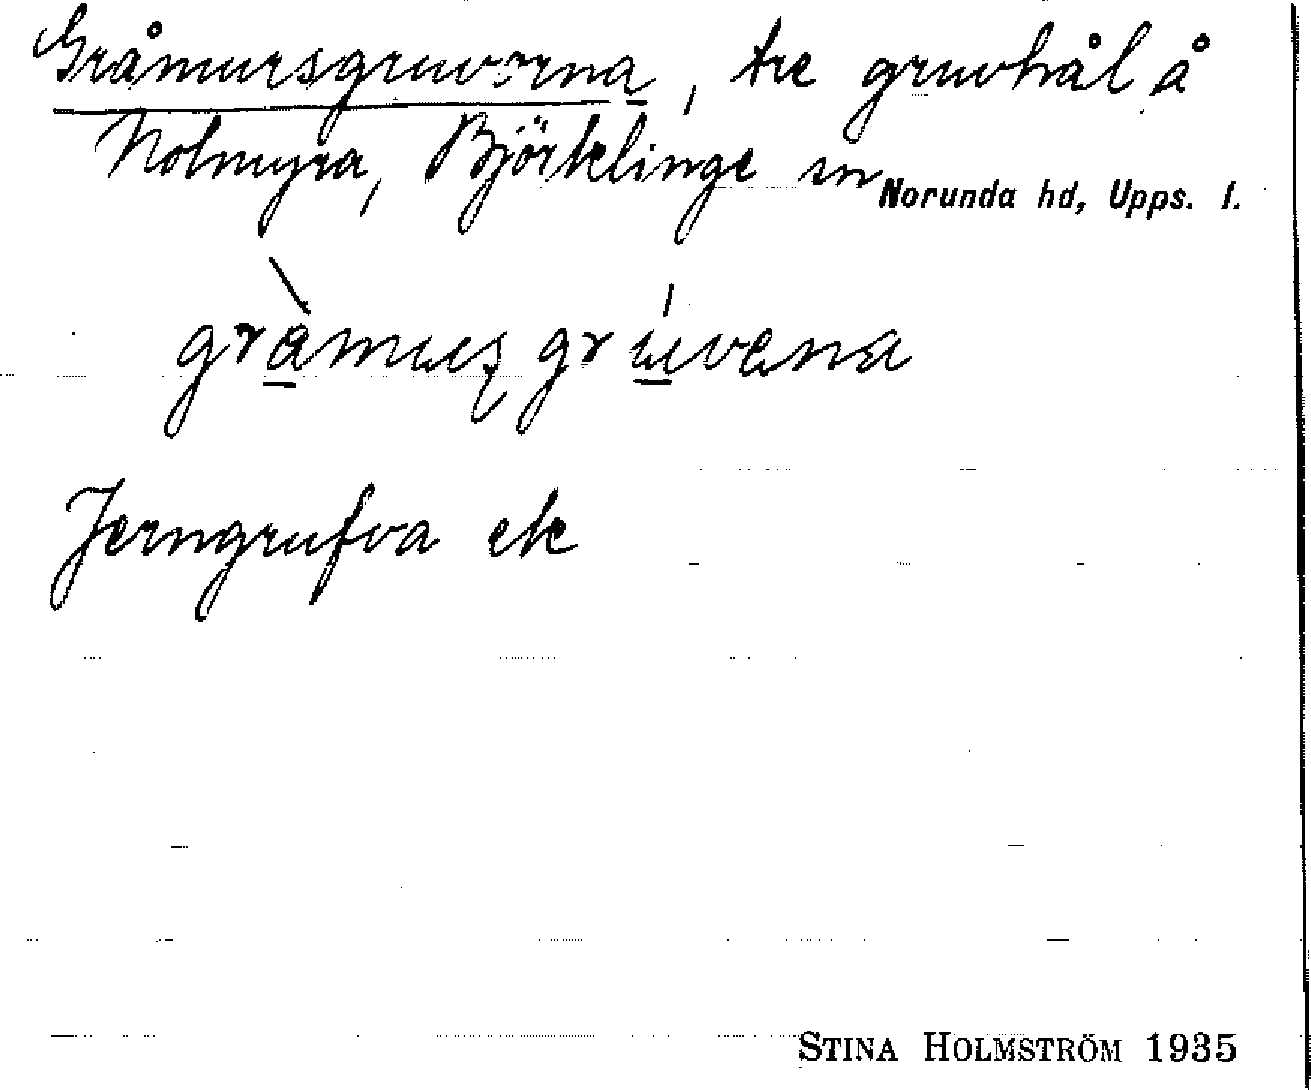 Gråmursgruvorna, tre gruvhål å
Nolmyra, Björklinge sn Norunda hd, Upps. l.
gràmuʂgrúvena
Jerngrufva ek
STINA HOLMSTRÖM 1935